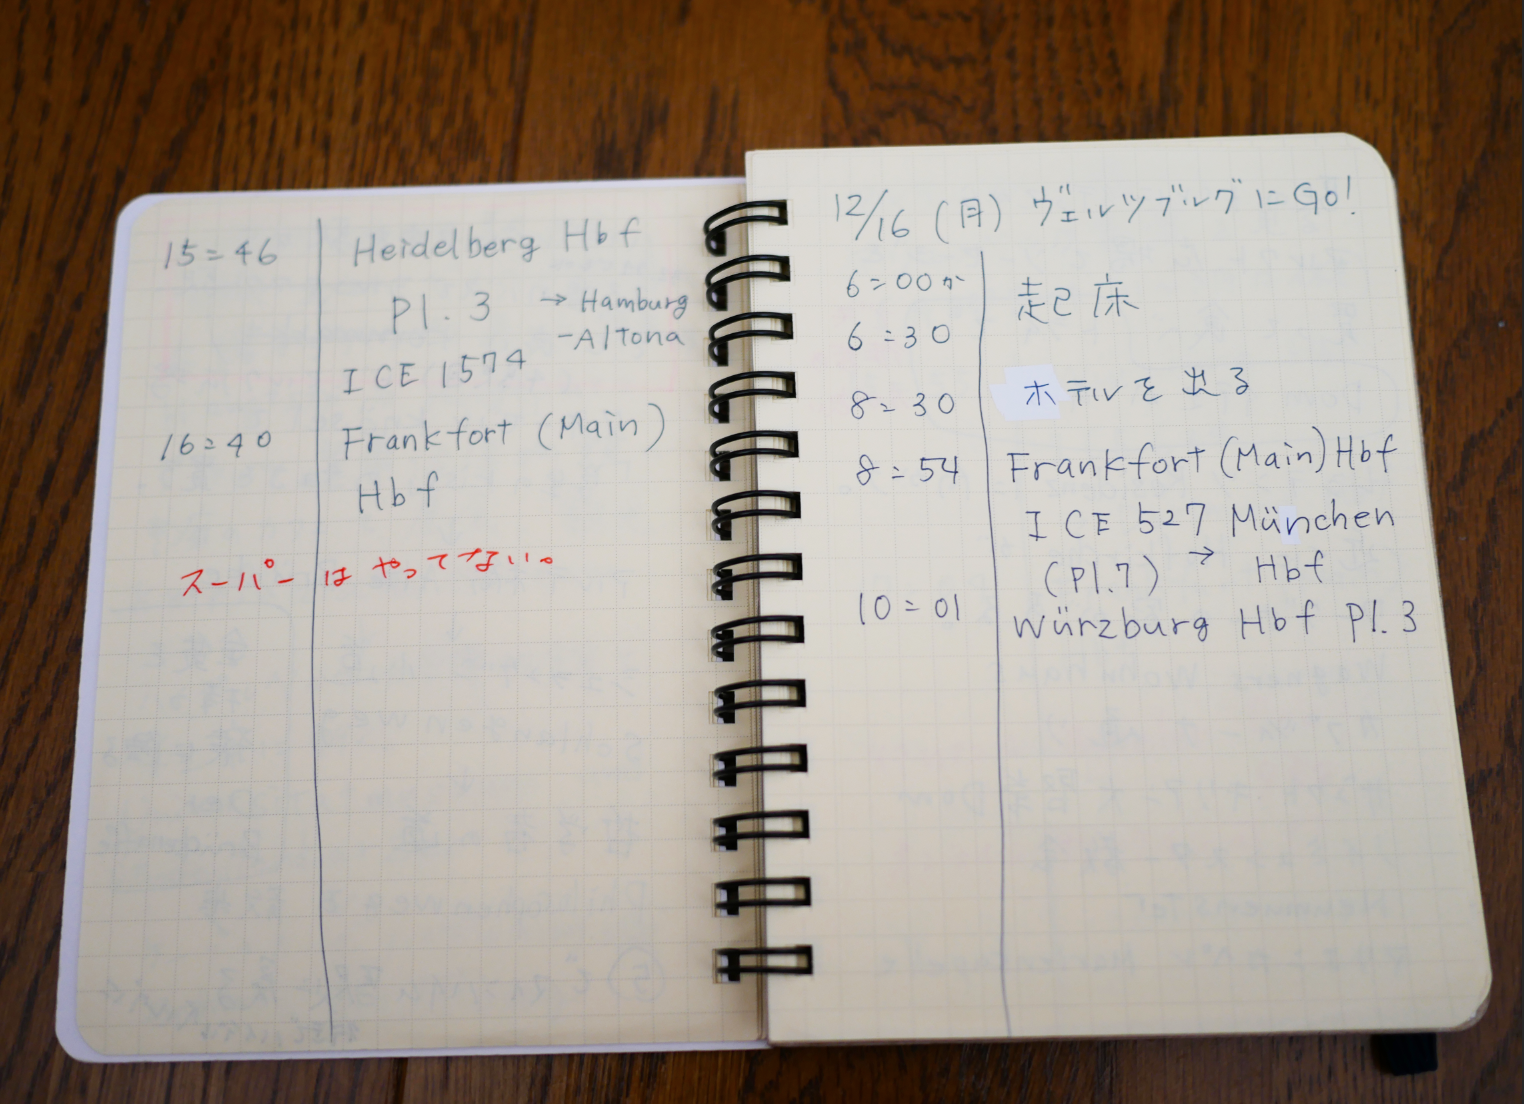 15:46 Heidelberg Hbf
Pl. 3 → Hamburg
-Altona
ICE 1574
16:40 Frankfort (Main)
Hbf
スーパーはやってない。
12/16 (月) ヴェルツブルグにGo!
6:00か 起床
6:30
8:30 ホテルを出る
8:54 Frankfort (Main) Hbf
ICE 527 München
(Pl.7) → Hbf
10:01 Würzburg Hbf Pl. 3